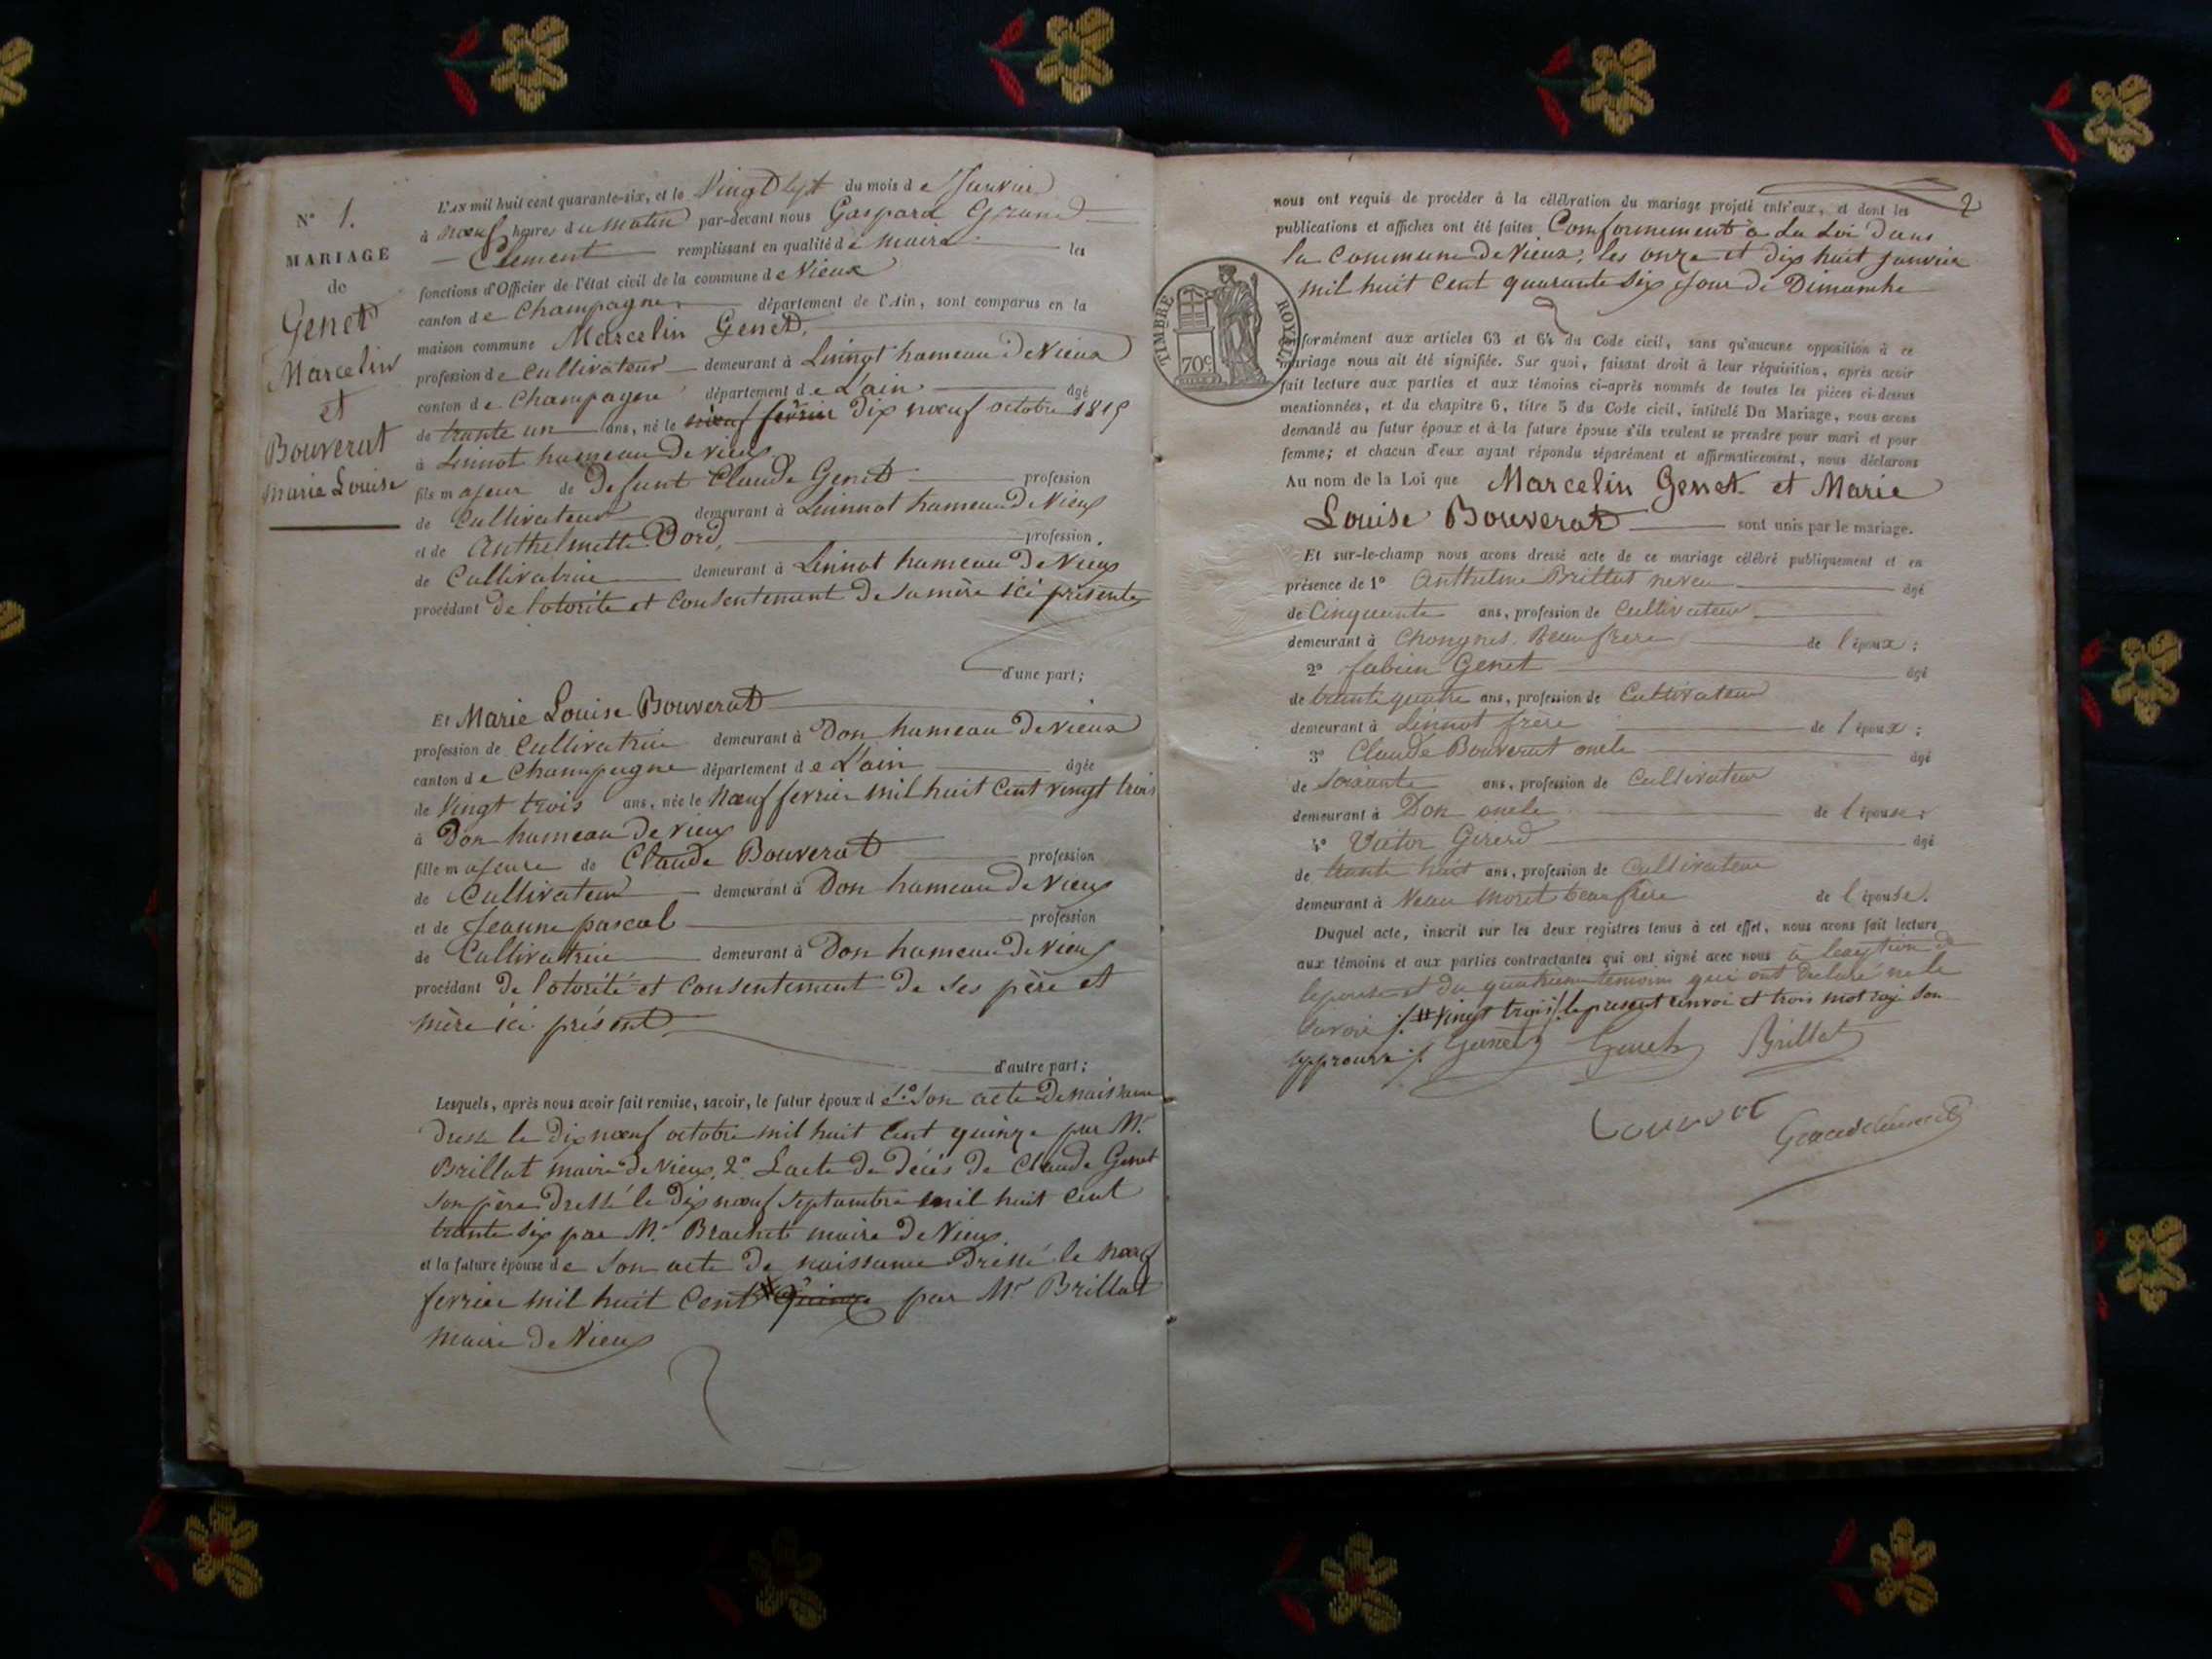 N° 1.
MARIAGE
de
Genet
Marcelin
et
Bouverat
Marie Louise
L'AN mil huit cent quarante-six, et le Vingt sept du mois de Janvier
à nœuf heures du matin par-devant nous Gaspard Grand
Clement remplissant en qualité de maire les
fonctions d'Officier de l'état civil de la commune de Vieux
canton de Champagne département de l'Ain, sont comparus en la
maison commune Marcelin Genet,
profession de Cultivateur demeurant à Linnot hameau de Vieux
canton de Champagne département de L'ain âgé
de trante un ans, né le nœuf fevrier dix nœuf octobre 1815
à Linnot hameau de vieux
fils majeur de Defunt Claude Genet profession
de Cultivateur demeurant à Linnot hameau de Vieux
et de Anthelmette Dord, profession
de Cultivatrice demeurant à Linnot hameau de Vieux
procédant de l'otorité et consentement de sa mère ici présente
d'une part;
Et Marie Louise Bouverat
profession de Cultivatrice demeurant à Don hameau de vieux
canton de Champagne département de L'ain âgée
de Vingt trois ans, née le Nœuf fevrier mil huit Cent vingt trois
à Don hameau de vieux
fille majeure de Claude Bouverat profession
de Cultivateur demeurant à Don hameau de Vieux
et de Jeanne pascal profession
de Cultivatrice demeurant à Don hameau de Vieux
procédant de l'otorité et consentement de ses père et
mère ici présent
d'autre part;
Lesquels, après nous avoir fait remise, savoir, le futur époux de 1° son acte de naissance
dressé le dix nœuf octobre mil huit Cent quinze par Mr
Brillat maire de Vieux, 2° L'acte de décès de Claude Genet
son père dressé le dix nœuf septambre mil huit Cent
trante six par Mr Brachet maire de Vieux.
et la future épouse de son acte de naissance dressé le nœuf
fevrier mil huit Cent # Quinze par Mr Brillat
maire de Vieux
2
nous ont requis de procéder à la célébration du mariage projeté entr'eux, et dont les
publications et affiches ont été faites Comformement à La Loi dans
la Commune de Vieux, les onze et dix huit janvier
mil huit Cent quarante six jour de Dimanche
TIMBRE ROYAL
70c
formément aux articles 63 et 64 du Code civil, sans qu'aucune opposition à ce
mariage nous ait été signifiée. Sur quoi, faisant droit à leur réquisition, après avoir
fait lecture aux parties et aux témoins ci-après nommés de toutes les pièces ci-dessus
mentionnées, et du chapitre 6, titre 5 du Code civil, intitulé Du Mariage, nous avons
demandé au futur époux et à la future épouse s'ils veulent se prendre pour mari et pour
femme; et chacun d'eux ayant répondu séparément et affirmativement, nous déclarons
Au nom de la Loi que Marcelin Genet et Marie
Louise Bouverat sont unis par le mariage.
Et sur-le-champ nous avons dressé acte de ce mariage célébré publiquement et en
présence de 1° Anthelme Brillat neveu âgé
de Cinquante ans, profession de Cultivateur
demeurant à Chongnes Beaufrere de l'époux;
2° fabien Genet âgé
de trante quatre ans, profession de Cultivateur
demeurant à Linnot frère de l'époux;
3° Claude Bouverat oncle âgé
de soixante ans, profession de Cultivateur
demeurant à Don oncle de l'épouse;
4° Victor Girerd âgé
de trante huit ans, profession de Cultivateur
demeurant à beaufrère de l'épouse.
Duquel acte, inscrit sur les deux registres tenus à cet effet, nous avons fait lecture
aux témoins et aux parties contractantes qui ont signé avec nous à lexeption de
lepouse et du quatrieme temoins qui ont declaré ne le
savoir ./. # vingt trois /. le present renvoi et trois mot rayé son
approuvé ./. Genet Genet Brillat
Bouverat Grandclement